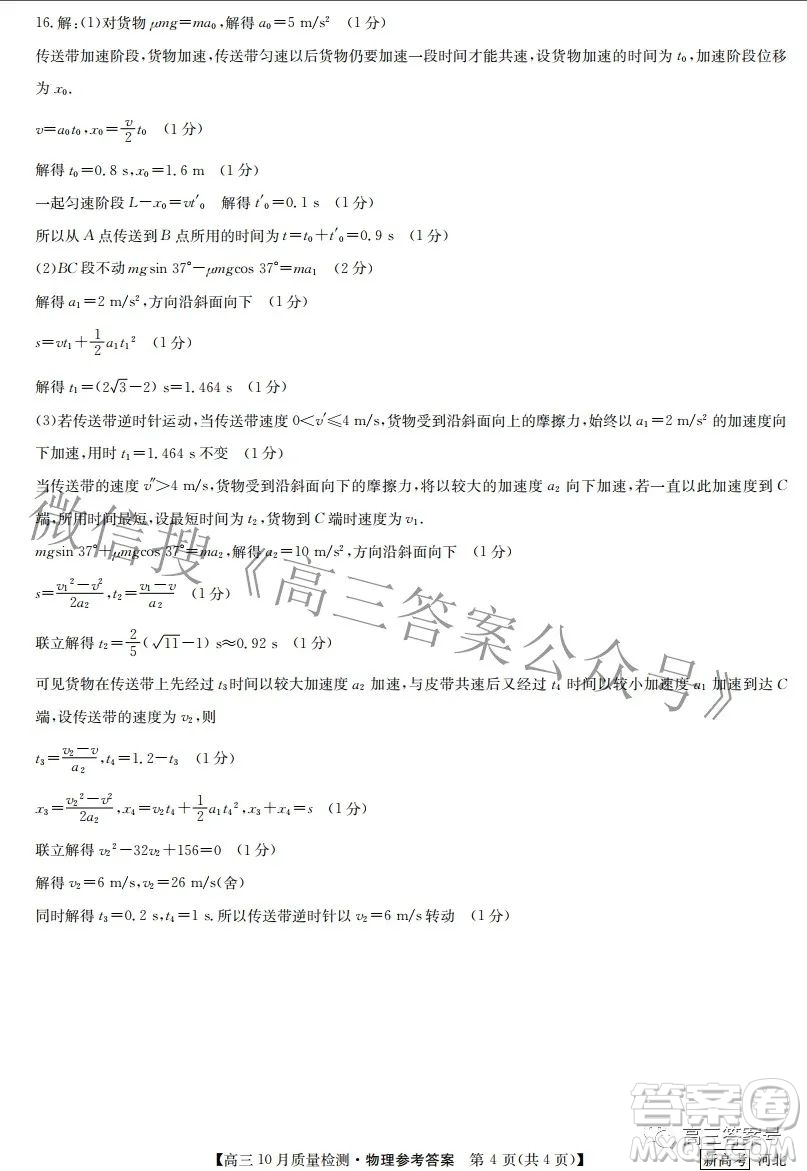 16.解:(1)对货物 μmg=ma₀,解得 a₀=5 m/s² (1分)
传送带加速阶段,货物加速,传送带匀速以后货物仍要加速一段时间才能共速,设货物加速的时间为 t₀,加速阶段位移
为 x₀.
v=a₀t₀,x₀=v/2 t₀ (1分)
解得 t₀=0.8 s,x₀=1.6 m (1分)
一起匀速阶段 L-x₀=vt′₀ 解得 t′₀=0.1 s (1分)
所以从 A 点传送到 B 点所用的时间为 t=t₀+t′₀=0.9 s (1分)
(2)BC段不动 mgsin 37°-μmgcos 37°=ma₁ (2分)
解得 a₁=2 m/s²,方向沿斜面向下 (1分)
s=vt₁+1/2 a₁t₁² (1分)
解得 t₁=(2√3-2) s=1.464 s (1分)
(3)若传送带逆时针运动,当传送带速度 0<v′≤4 m/s,货物受到沿斜面向上的摩擦力,始终以 a₁=2 m/s² 的加速度向
下加速,用时 t₁=1.464 s不变 (1分)
当传送带的速度 v″>4 m/s,货物受到沿斜面向下的摩擦力,将以较大的加速度 a₂ 向下加速,若一直以此加速度到 C
端,所用时间最短,设最短时间为 t₂,货物到 C 端时速度为 v₁.
mgsin 37°+μmgcos 37°=ma₂,解得 a₂=10 m/s²,方向沿斜面向下 (1分)
s=(v₁²-v²)/2a₂,t₂=(v₁-v)/a₂ (1分)
联立解得 t₂=2/5(√11-1) s≈0.92 s (1分)
可见货物在传送带上先经过 t₃时间以较大加速度 a₂ 加速,与皮带共速后又经过 t₄ 时间以较小加速度 a₁ 加速到达 C
端,设传送带的速度为 v₂,则
t₃=(v₂-v)/a₂,t₄=1.2-t₃ (1分)
x₃=(v₂²-v²)/2a₂,x₄=v₂t₄+1/2 a₁t₄²,x₃+x₄=s (1分)
联立解得 v₂²-32v₂+156=0 (1分)
解得 v₂=6 m/s,v₂=26 m/s(舍)
同时解得 t₃=0.2 s,t₄=1 s.所以传送带逆时针以 6 m/s转动 (1分)
微信搜《高三答案公众号》
答案圈
高三答案号
MXQE.COM
【高三10月质量检测·物理参考答案 第4页(共4页)】
新高考 河北